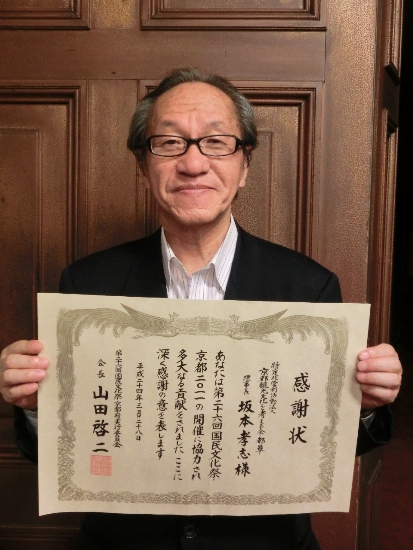 感謝状
特定非営利活動法人
京都観光文化を考える会・都草
理事長 坂本孝志様
あなたは第二十六回国民文化祭
京都二〇一一の開催に協力され
多大なる貢献をされました ここに
深く感謝の意を表します
平成二十四年三月二十八日
第二十六回国民文化祭京都府実行委員会
会長 山田啓二